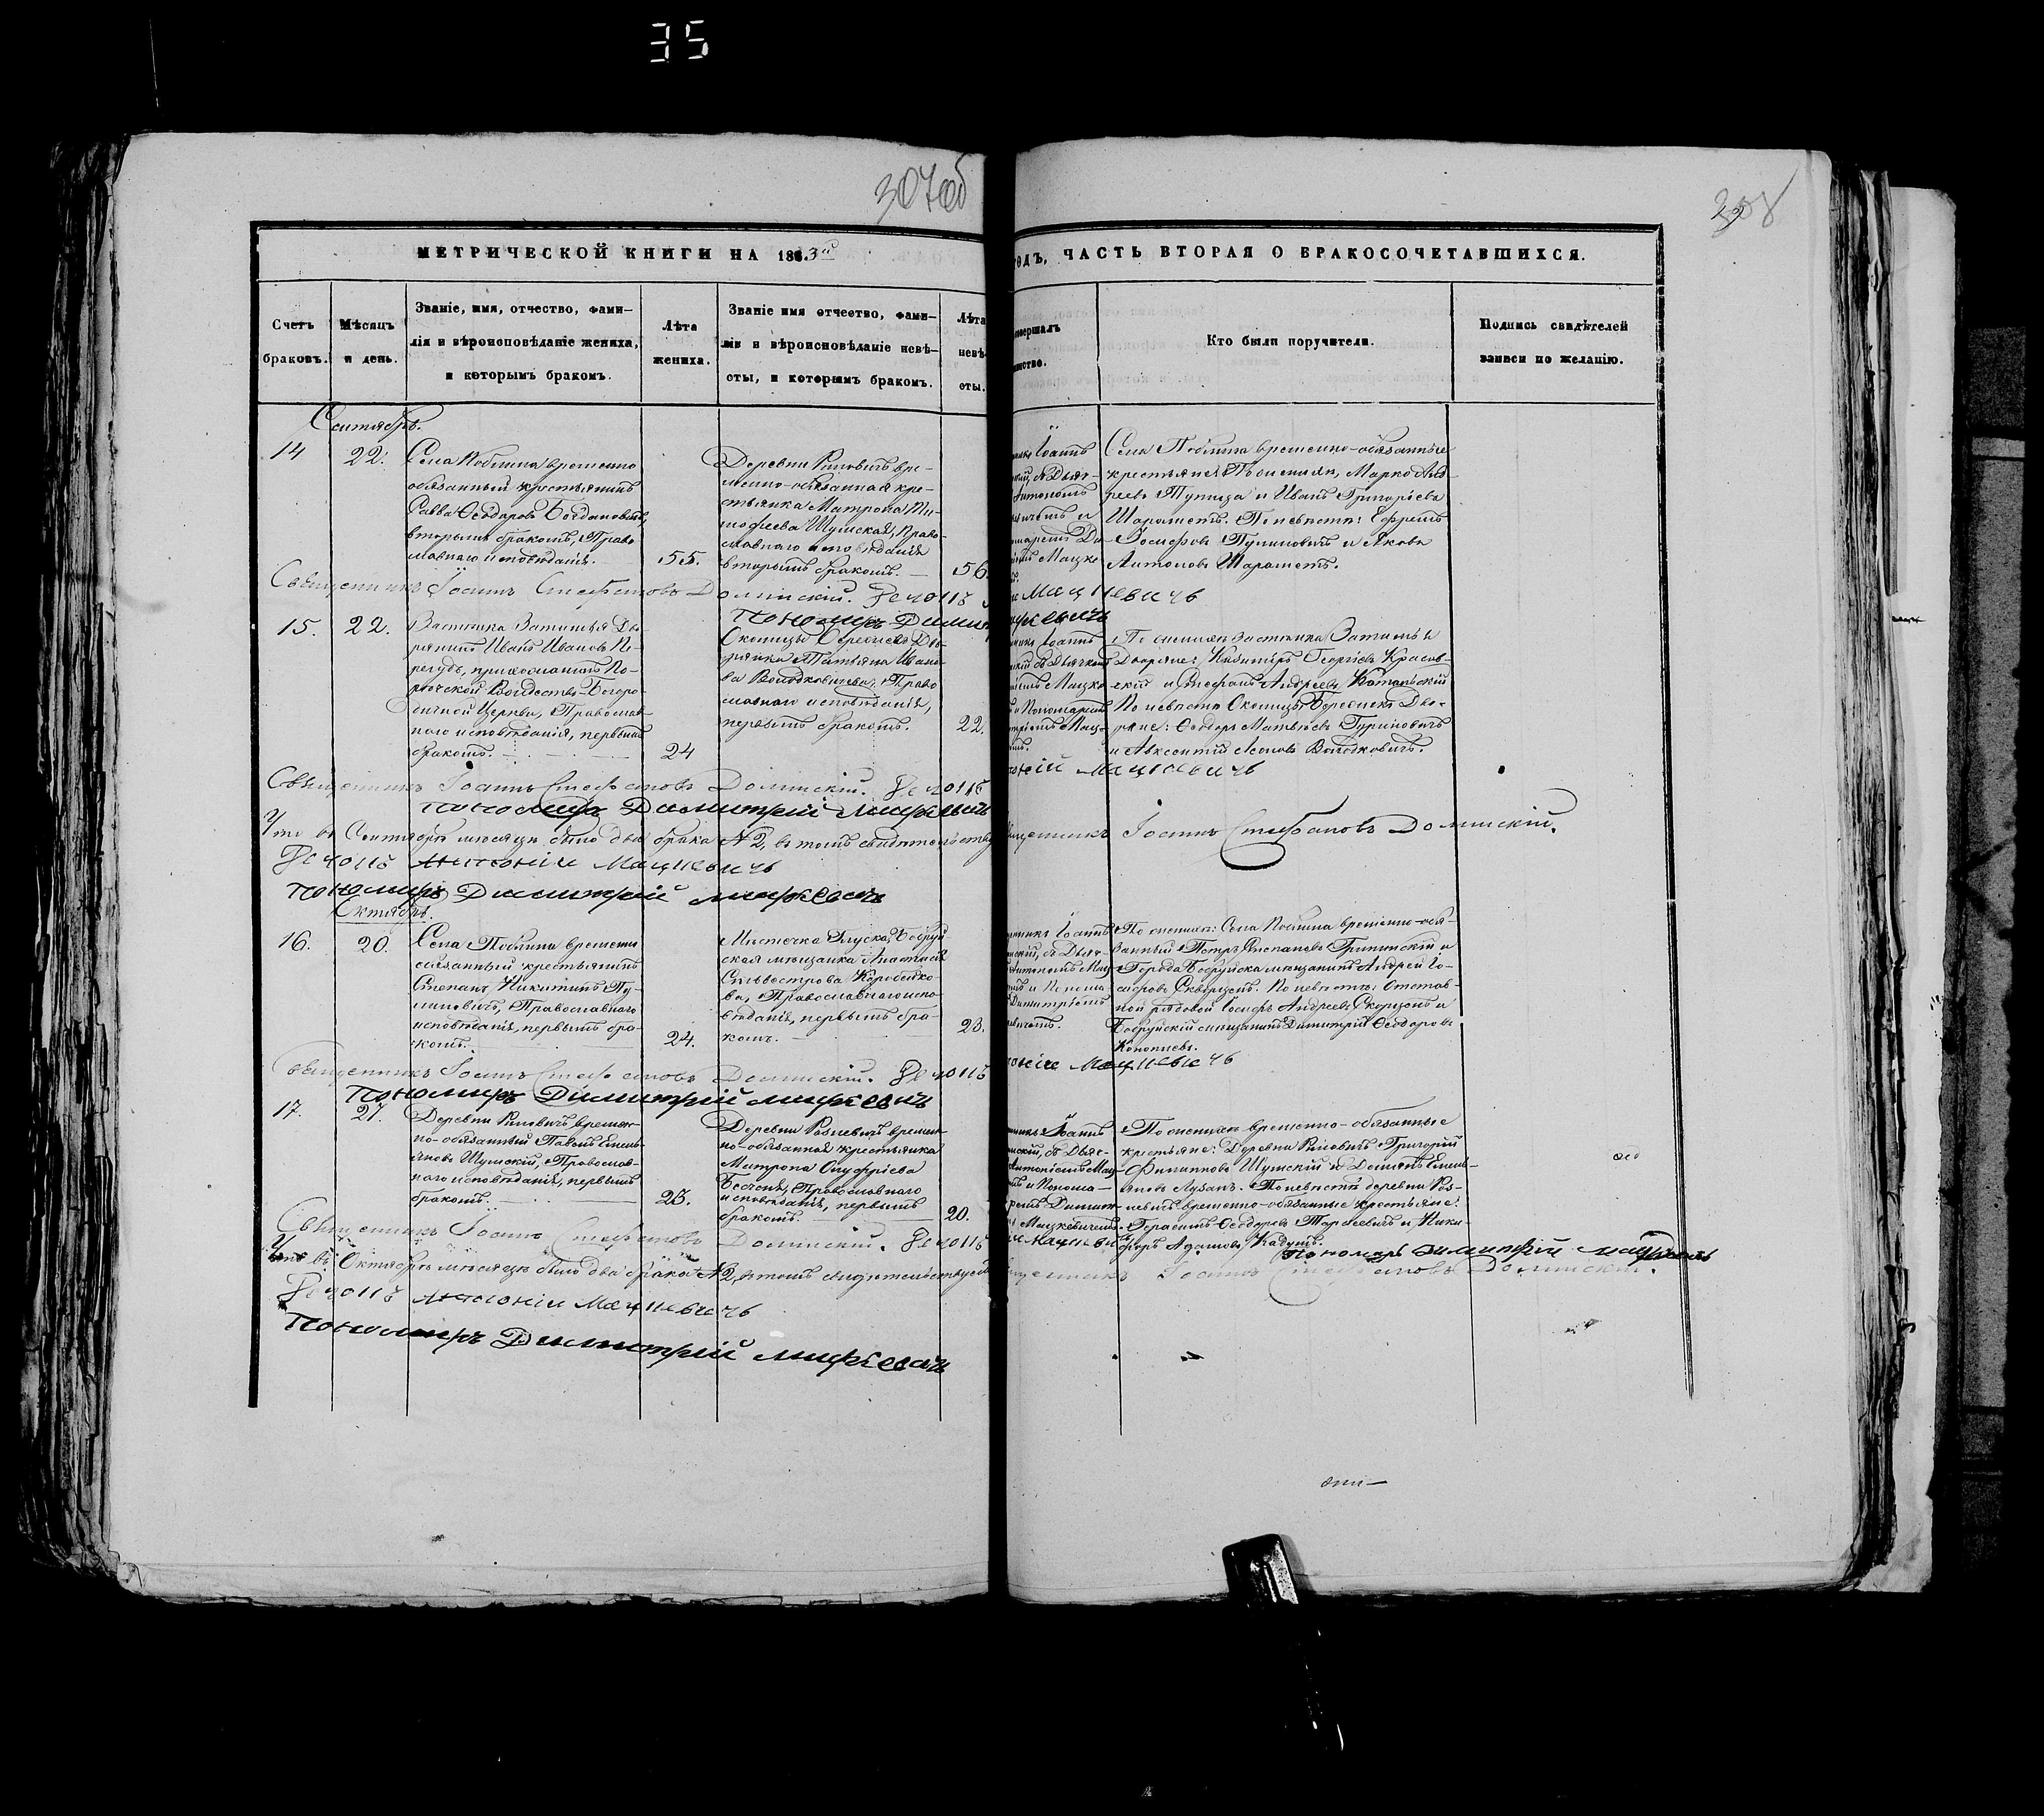 35
307об
308
МЕТРИЧЕСКОЙ КНИГИ НА 1863й
годъ, ЧАСТЬ ВТОРАЯ О БРАКОСОЧЕТАВШИХСЯ.
Счетъ браковъ.
Мѣсяцъ и день.
Званіе, имя, отчество, фами-
лія и вѣроисповѣданіе жениха,
и которымъ бракомъ.
Лѣта
жениха.
Званіе имя отчество, фами-
лія и вѣроисповѣданіе невѣ-
сты, и которымъ бракомъ.
Лѣта
невѣ-
сты.
Кто были поручители.
Подпись свидѣтелей
записи по желанію.
Сентябрь.
14
22.
Села Поблина временно
обязанный крестьянинъ
Савва Ѳеодоровъ Богдановичъ,
вторымъ бракомъ, Право
славнаго исповѣданія.
55.
Деревни Римовичъ вре-
менно-обязанная кре-
стьянка Матрона Ти-
мофеева Шумская, Право-
славнаго исповѣданія
вторымъ бракомъ.
56.
Іоаннъ
Села Поблина временно-обязанные
крестьяне: По женихѣ, Марко Анд
реевъ Тупица и Иванъ Григорьевъ
Шараметъ. По невѣстѣ: Ефремъ
Іосифовъ Пулиновичъ и Яковъ
Антоновъ Шараметъ.
Священникъ Іоаннъ Стефановъ Долинскій. Дьячокъ
Мацкевичъ
Пономарь
15.
22.
Застѣнка Затишья Дво
рянинъ Иванъ Ивановъ Пе-
регудъ, прихожанинъ По-
рѣчской Рождество-Богоро-
дичной Церкви, Православ-
наго исповѣданія, первымъ
бракомъ.
24
Околицы Бересневъ Дво-
рянка Татьяна Ивано-
ва Володковичева, Право
славнаго исповѣданія,
первымъ бракомъ.
22.
По женихѣ застѣнка Затишья
Дворяне: Казимиръ Георгіевъ Красов-
скій и Стефанъ Андреевъ Котальскій
По невѣстѣ Околицы Бересневъ Дво-
ряне: Ѳеодоръ Матвѣевъ Гуриновичъ
и Авксентій Леоновъ Володковичъ.
Священникъ Іоаннъ Стефановъ Долинскій. Дьячокъ
Мацкевичъ
Пономарь Димитрій Мацкевичъ
Что въ Сентябрѣ мѣсяцѣ было два брака № 2, въ томъ свидѣтельству
Іоаннъ Стефановъ Долинскій.
Дьячокъ Антоній Мацкевичъ
Пономарь Димитрій Мацкевичъ
Октябрь.
16.
20.
Села Поблина временно
обязанный крестьянинъ
Степанъ Никитинъ Пу-
линовичъ, Православнаго
исповѣданія, первымъ бра-
комъ.
24.
Мѣстечка Глуска, Бобруй
ская мѣщанка Анастасія
Сильвестрова Коробейко-
ва, Православнаго испо-
вѣданія, первымъ бра-
комъ.
23.
По женихѣ: Села Поблина временно-обя-
занный Петръ Степановъ Гриминскій и
Города Бобруйска мѣщанинъ Андрей Іо-
сифовъ Скворцовъ. По невѣстѣ: Отстав-
ной рядовой Іосифъ Андреевъ Скворцовъ и
Бобруйскій мѣщанинъ Димитрій Ѳеодоровъ
Кононцевъ.
Священникъ Іоаннъ Стефановъ Долинскій. Дьячокъ
Мацкевичъ
Пономарь Димитрій Мацкевичъ
17.
27.
Деревни Римовичъ времен-
но-обязанный Павелъ Емель-
яновъ Шумскій, Православ-
наго исповѣданія, первымъ
бракомъ.
23.
Деревни Розлевичъ времен-
но-обязанная крестьянка
Матрона Онуфріева
Православнаго
исповѣданія, первымъ
бракомъ.
20.
По женихѣ временно-обязанные
крестьяне: Деревни Римовичъ Григорій
Филипповъ Шумскій и Дамьянъ Емель-
яновъ Лузанъ. По невѣстѣ деревни Роз-
левичъ временно-обязанные крестьяне:
Герасимъ Ѳеодоровъ Тарасевичъ и Ники-
форъ Адамовъ Кадушъ.
Священникъ Іоаннъ Стефановъ Долинскій. Дьячокъ
Пономарь Димитрій Мацкевичъ
Что въ Октябрѣ мѣсяцѣ было два брака № 2, въ томъ свидѣтельствуемъ
Іоаннъ Стефановъ Долинскій.
Дьячокъ Антоній Мацкевичъ
Пономарь Димитрій Мацкевичъ